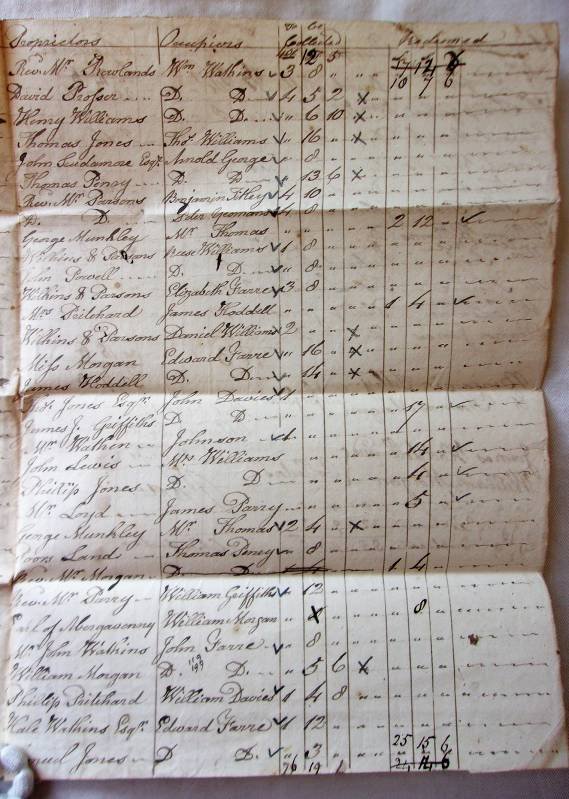 Proprietors Occupiers Collected Redeemed
48 12 5 17 12 6
Revd. Mr. Rowlands Wm. Watkins 3 8 " " " 10 7 6
David Prosser D. D. 4 5 2 x
Henry Williams D. D. " 6 10 x
Thomas Jones Thos. Williams " 16 " x
John Scudamore Esqr. Arnold George " 8
Thomas Penry D. D " 13 6 x
Revd. Mr. Parsons Benjamin 4 10
D. D. 4 8
George Munkley Mr. Thomas 2 12 "
Wilkins & Parsons Williams 1 8
John Powell D. D. " 8
Wilkins & Parsons Elizabeth Farre 3 8
Mrs Pritchard James Hoddell 1 4 "
Wilkins & Parsons Daniel Williams 2 x
Miss Morgan Edward Farre " 16 " x
James Hoddell D. D. " 14 " x
Thos. Jones Esqr. John Davies 1
James J. Griffiths D. D 17 "
Mr. Wathen Johnson 1
John Lewis Mrs. Williams 14 "
Philip Jones D. D 4 "
Mr. Loyd James Parry 5 "
George Munkley Mr. Thomas 2 4 " x
Poors Land Thomas Penry " 8
Revd. Mr. Morgan D. D. 1 4
Revd. Mr. Parry William Griffiths " 12
Earl of William Morgan 8
Mr. John Watkins John Farre " 8
William Morgan D. D. " 5 6 x
Philip Pritchard William Davies 1 4 8
Watkins Esqr. Edward Farre 1 12
Samuel Jones D D. " 3 " 25 15 6
76 19 1 6